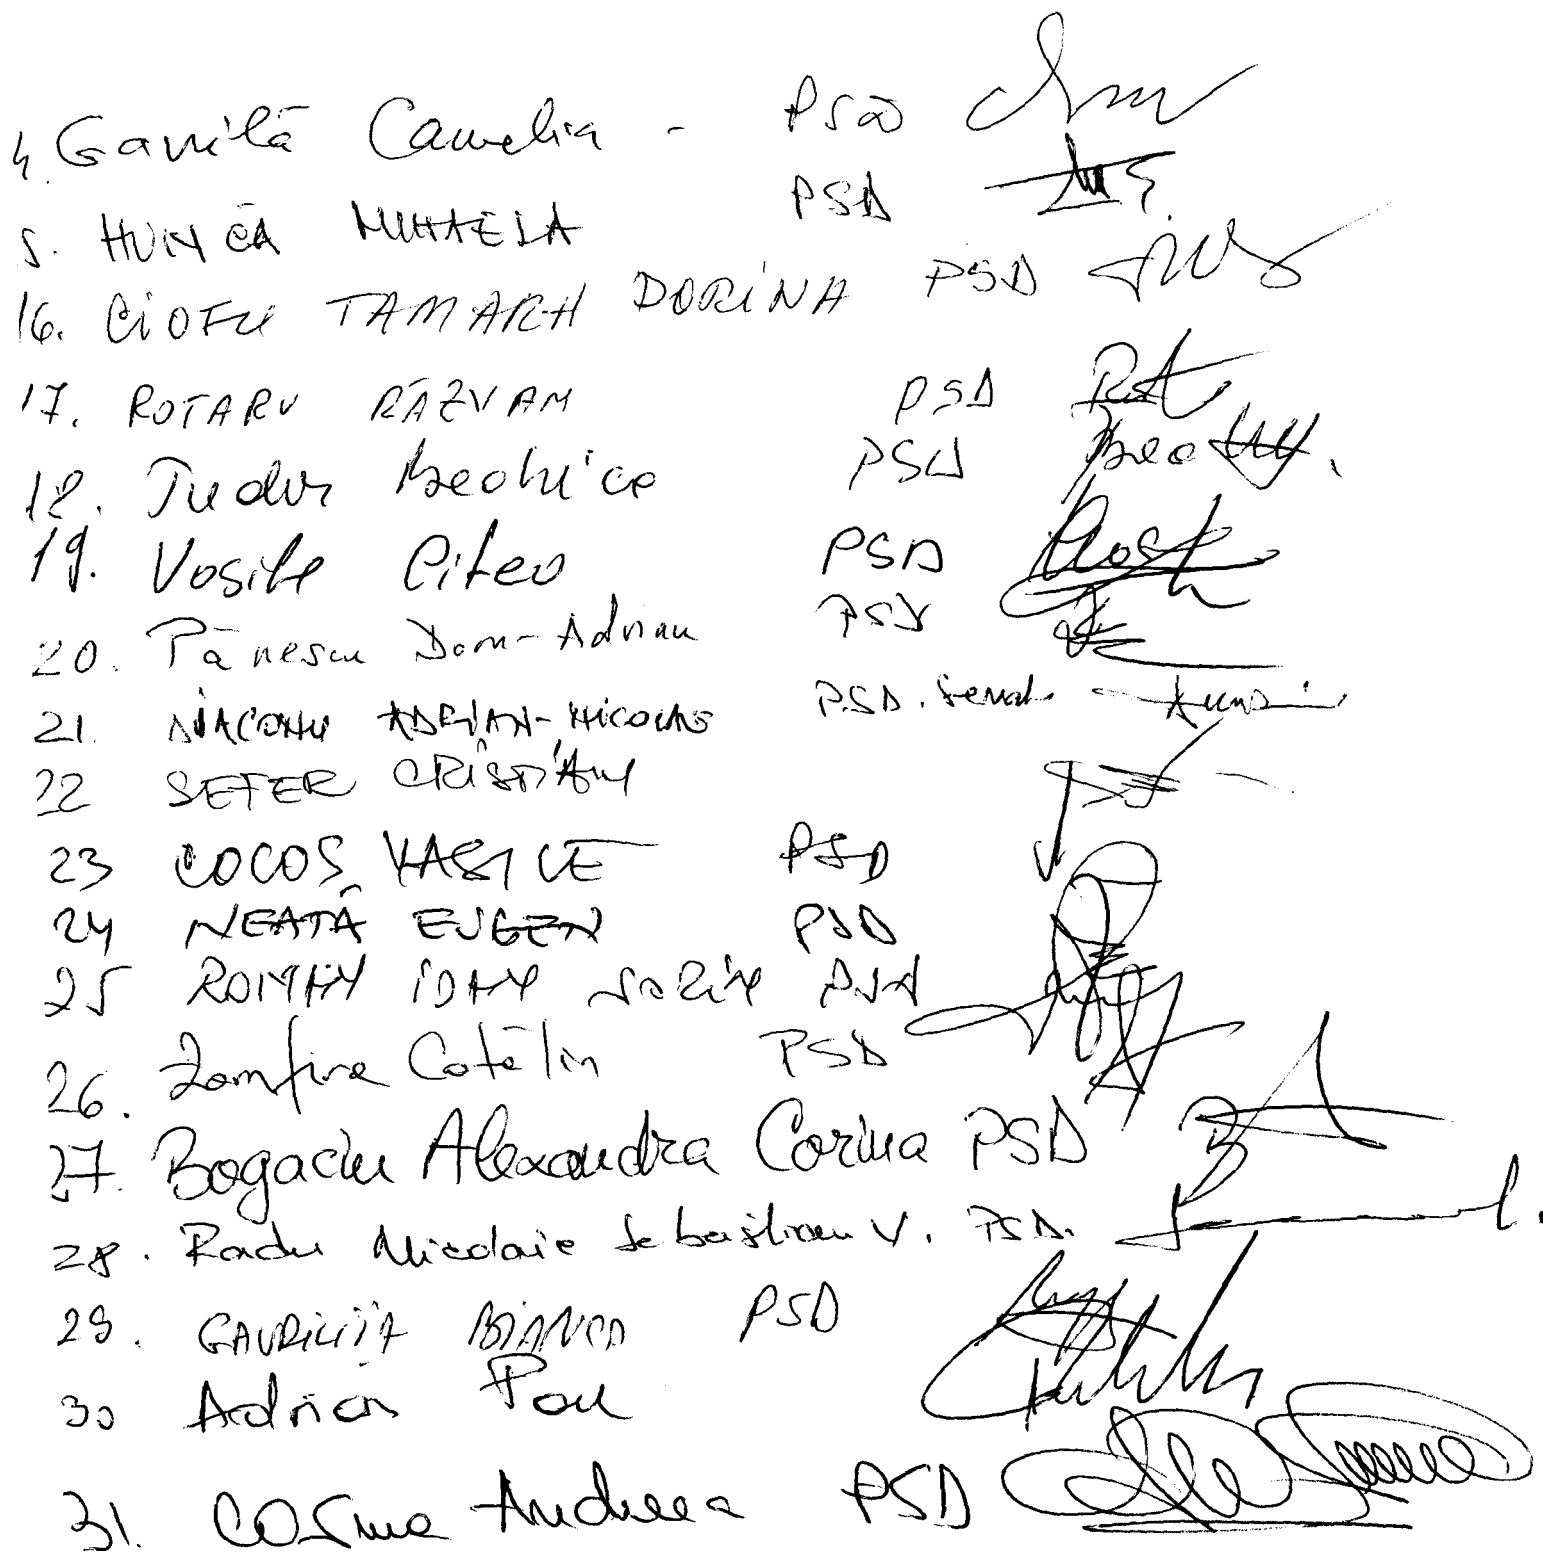 4. Gavrilă Camelia - PSD
5. HUNCĂ MIHAELA PSD
16. CIOFU TAMARA DORINA PSD
17. ROTARU RĂZVAN PSD
18. Tudor Beatrice PSD
19. Vasile Citea PSD
20. Pănescu Doru-Adrian PSD
21. DIACONU ADRIAN-NICOLAE PSD. Senat
22 SEFER CRISTIAN
23 COCOȘ VASILE PSD
24 NEATĂ EUGEN PSD
25 ROMAN IOAN SORIN PSD
26. Zamfira Cătălin PSD
27. Bogaciu Alexandra Corina PSD
28. Radu Nicolaie Sebastian V. PSD.
29. GAVRILIȚĂ BIANCA PSD
30 Adrian Pau
31. Cosma Andreea PSD